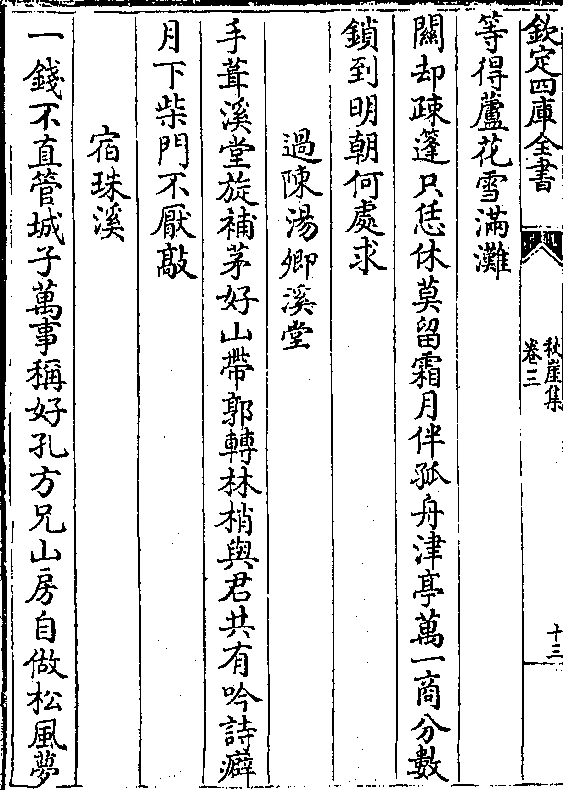 欽定四庫全書
秋崖集
卷三
十三
等得蘆花雪滿灘
關却疎篷只恁休莫留霜月伴孤舟津亭萬一商分數
鎖到明朝何處求
過陳湯卿溪堂
手葺溪堂旋補茅好山帶郭轉林梢與君共有吟詩癖
月下柴門不厭敲
宿珠溪
一錢不直管城子萬事稱好孔方兄山房自做松風夢